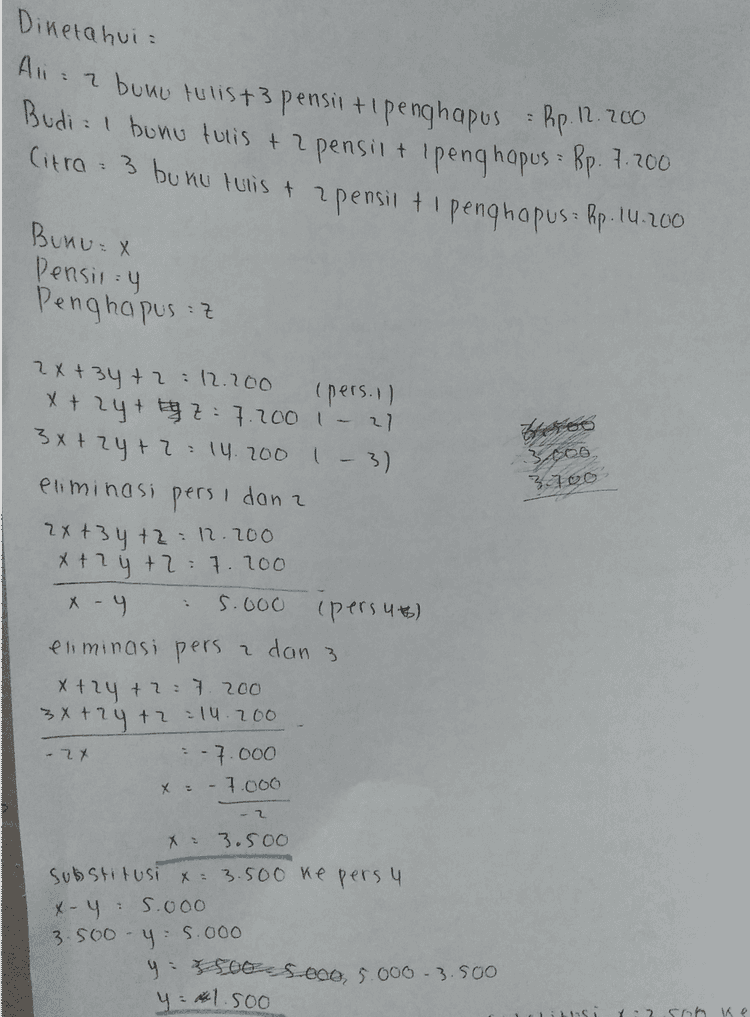 Diketahui =
Ali = 2 buku tulis + 3 pensil + 1 penghapus = Rp. 12.200
Budi = 1 buku tulis + 2 pensil + 1 penghapus = Rp. 7.200
Citra = 3 buku tulis + 2 pensil + 1 penghapus = Rp. 14.200
Buku = x
Pensil = y
Penghapus = z
2x + 3y + z = 12.200 (pers. 1)
x + 2y + z = 7.200 ( - 2)
3x + 2y + z = 14.200 ( - 3)
3.000
3.700
eliminasi pers 1 dan 2
2x + 3y + z = 12.200
x + 2y + z = 7.200
x - y = 5.000 (pers 4)
eliminasi pers 2 dan 3
x + 2y + z = 7.200
3x + 2y + z = 14.200 -
-2x = -7.000
x = -7.000
-2
x = 3.500
Substitusi x = 3.500 ke pers 4
x - y = 5.000
3.500 - y = 5.000
y = 3.500 - 5.000, 5.000 - 3.500
y = 1.500